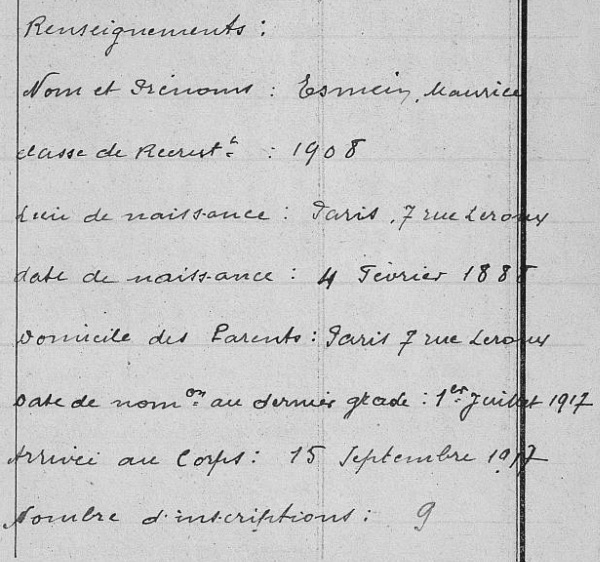 Renseignements :
Nom et Prénoms : Esmein, Maurice
classe de Recrut.t : 1908
Lieu de naissance : Paris, 7 rue Leroux
date de naissance : 4 Février 1888
Domicile des Parents : Paris 7 rue Leroux
Date de nom.on au dernier grade : 1er Juillet 1917
Arrivée au Corps : 15 Septembre 1917
Nombre d'inscriptions : 9